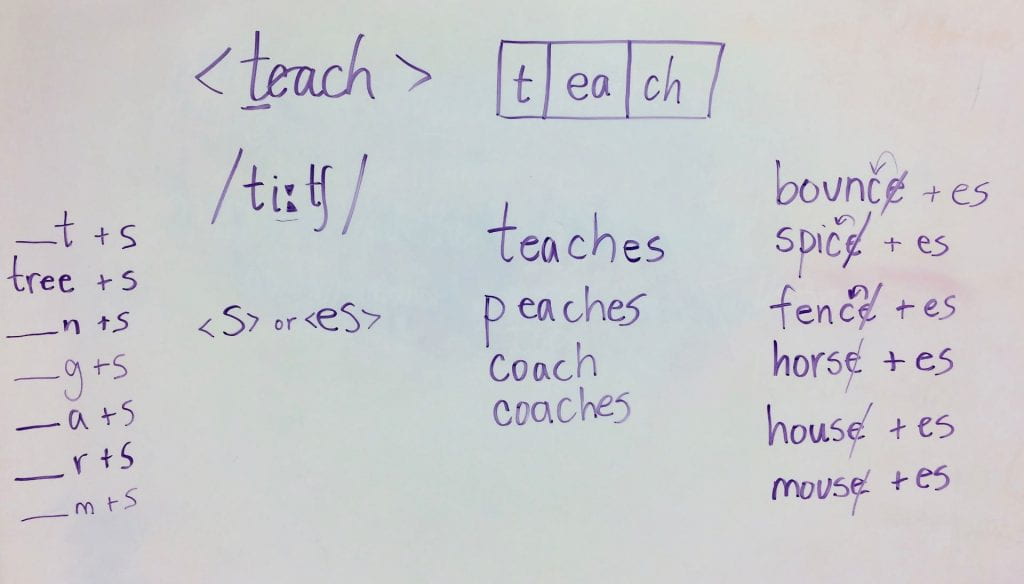 <teach>
t ea ch
/ti:ʧ/
__t +s
tree +s
__n +s
__g +s
__a +s
__r +s
__m +s
<s> or <es>
teaches
peaches
coach
coaches
bounce + es
spice + es
fence + es
horse + es
house + es
mouse + es